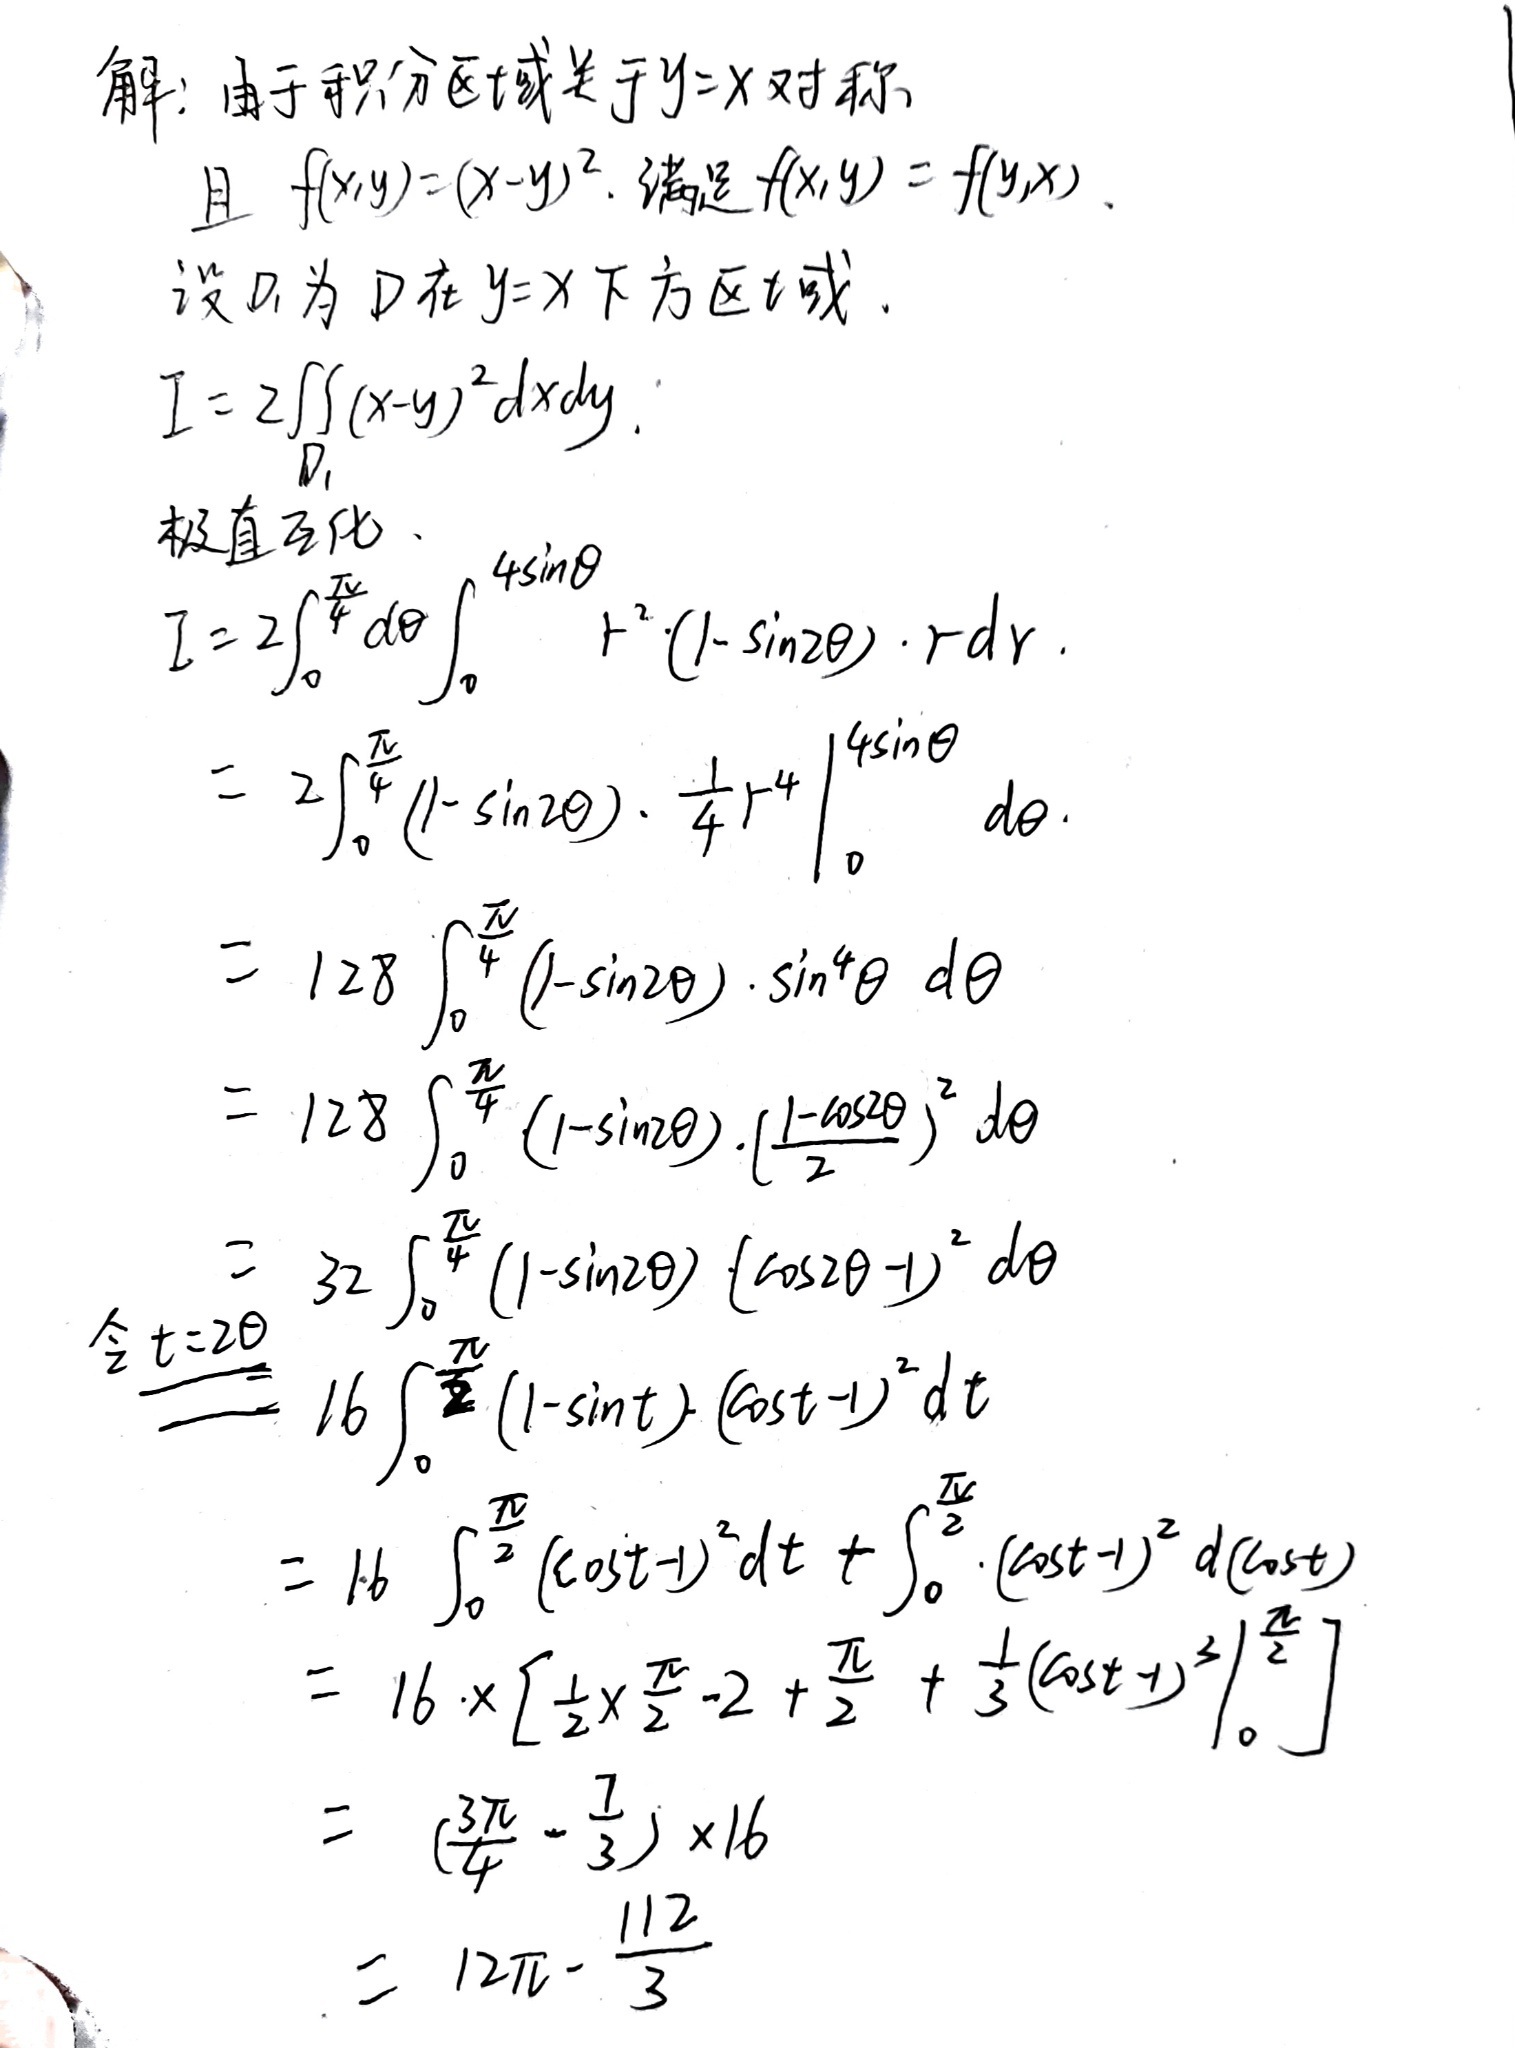 解：由于积分区域关于y=x对称,
且 f(x,y)=(x-y)². 满足 f(x,y) = f(y,x).
设 D₁为 D在 y=x 下方区域.
I = 2∬(x-y)²dxdy.
D₁
极直互化.
I = 2∫₀^{π/4} dθ ∫₀^{4sinθ} r²·(1-sin2θ)·rdr.
= 2∫₀^{π/4} (1-sin2θ)· 1/4 r⁴ |₀^{4sinθ} dθ.
= 128 ∫₀^{π/4} (1-sin2θ)·sin⁴θ dθ
= 128 ∫₀^{π/4} (1-sin2θ)·((1-cos2θ)/2)² dθ
= 32 ∫₀^{π/4} (1-sin2θ)·(cos2θ-1)² dθ
令 t=2θ = 16 ∫₀^{π/2} (1-sint)·(cost-1)²dt
= 16 ∫₀^{π/2} (cost-1)²dt + ∫₀^{π/2} (cost-1)² d(cost)
= 16 × [1/2 × π/2 - 2 + π/2 + 1/3 (cost-1)³ |₀^{π/2}]
= (3π/4 - 7/3) ×16
= 12π - 112/3